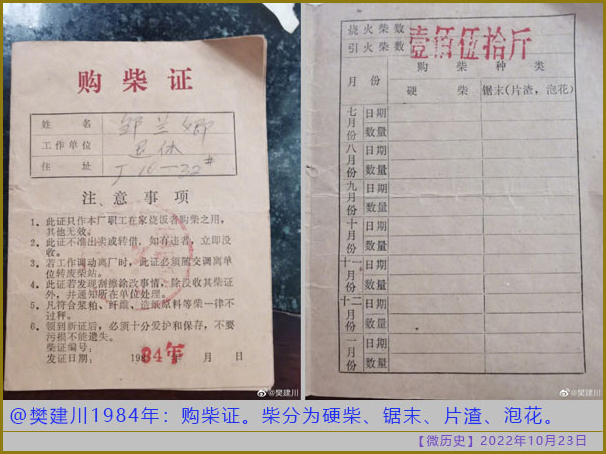 购柴证
姓名 邹兰娜
工作单位 退休
住址 J16-32#
注意事项
1、此证只作本厂职工在家烧饭者购柴之用，
其他无效。
2、此证不准出卖或转借，如有违者，立即没
收。
3、若工作调动离厂时，此证必须随交调离单
位转废柴站。
4、此证若发现刮擦涂改事情，除没收其柴证
外，并通知所在单位处理。
5、凡符合浆粕、纤维、造纸原料等柴一律不
过秤。
6、领到新证后，必须十分爱护和保存，不要
污损不能遗失。
柴证编号：
发证日期： 1984年 月 日
@樊建川
烧火柴数
引火柴数
壹佰伍拾斤
月份
购柴种类
硬柴
锯末（片渣，泡花）
七月份 日期
数量
八月份 日期
数量
九月份 日期
数量
十月份 日期
数量
十一月份 日期
数量
十二月份 日期
数量
一月份 日期
数量
@樊建川
@樊建川1984年：购柴证。柴分为硬柴、锯末、片渣、泡花。
【微历史】2022年10月23日